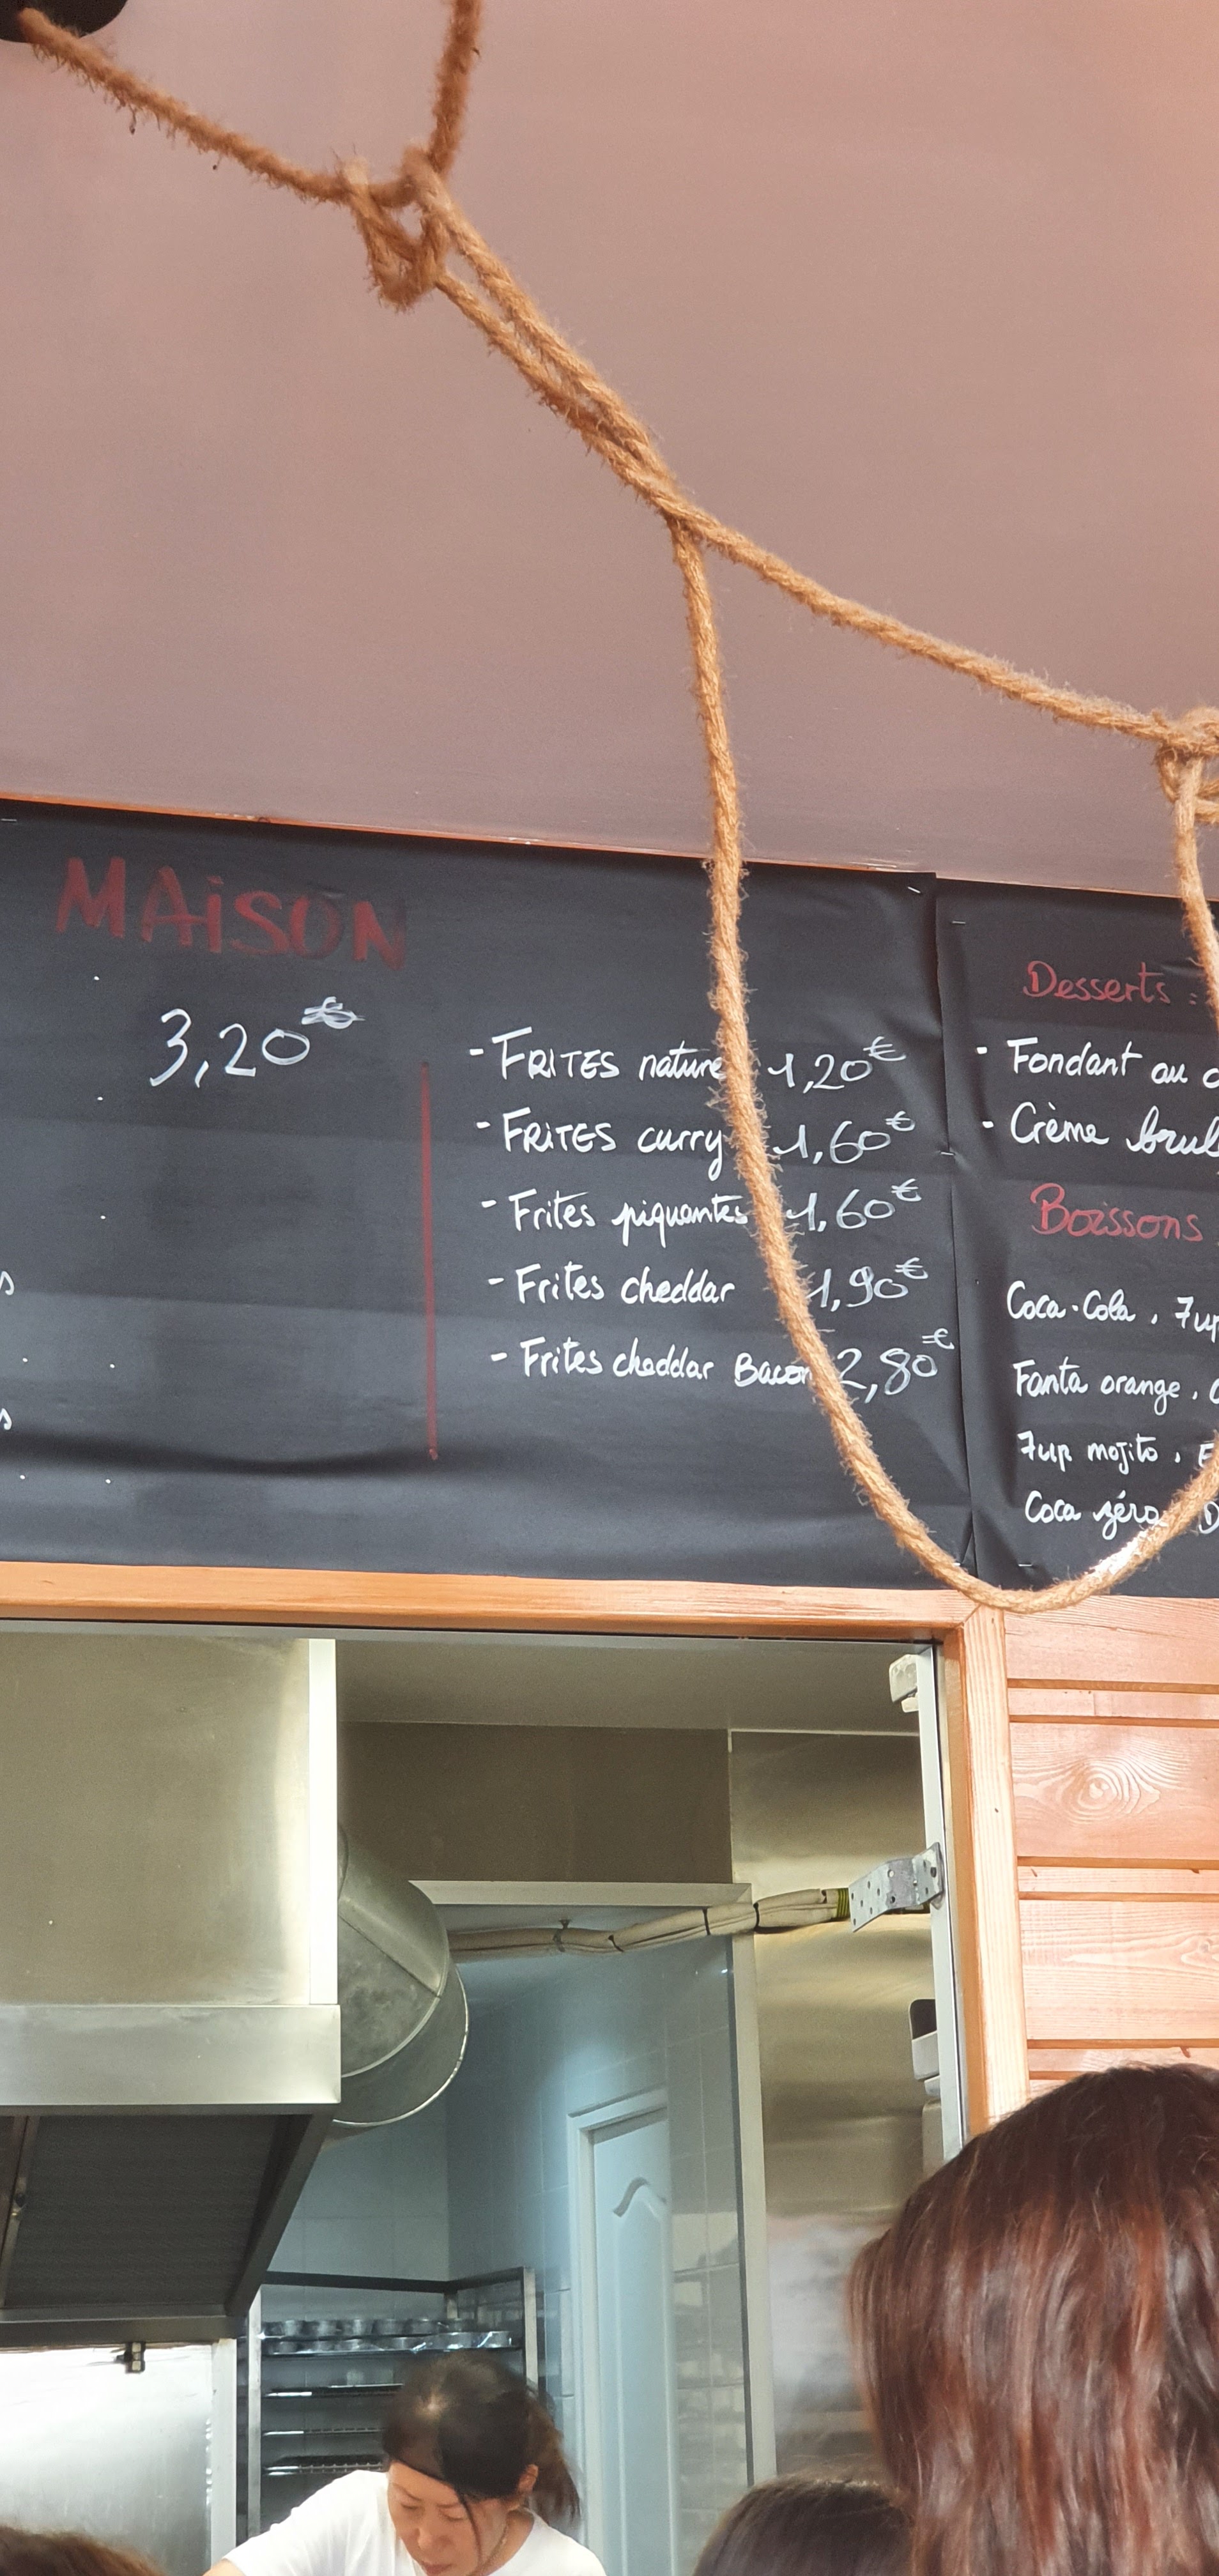 MAiSON
3,20€
s
s
- FRiTES nature 1,20€
- FRiTES curry 1,60€
- Frites piquantes 1,60€
- Frites cheddar 1,90€
- Frites cheddar Bacon 2,80€
Desserts :
- Fondant au c
- Crème brul
Boissons
Coca-Cola, 7up
Fanta orange,
7up mojito, E
Coca zéro D